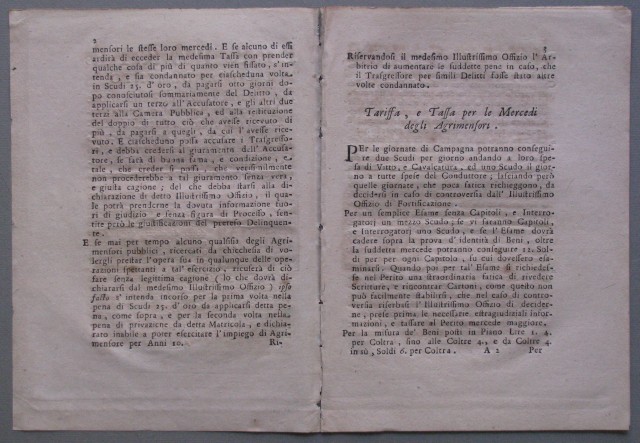 2
mensori le stesse loro mercedi. E se alcuno di essi
ardirà di ecceder la medesima Tassa con prender
qualche cosa di più di quanto vien fissato, s'in-
tenda, e sia condannato per ciascheduna volta
in Scudi 25. d' oro, da pagarsi otto giorni do-
po conosciutosi sommariamente del Delitto, da
applicarsi un terzo all'Accusatore, e gli altri due
terzi alla Camera Pubblica, ed alla restituzione
del doppio di tutto ciò che avesse ricevuto di
più, da pagarsi a quegli, da cui l' avesse ricevu-
to. E ciascheduno possa accusare i Trasgresso-
ri, e debba credersi al giuramento dell' Accusa-
tore, se sarà di buona fama, e condizione, e
tale, che creder si possa, che verisimilmente
non procederebbe a tal giuramento senza vera,
e giusta cagione; del che debba starsi alla di-
chiarazione di detto Illustrissimo Offizio, il qua-
le potrà prenderne la dovuta informazione fuo-
ri di giudizio e senza figura di Processo, sen-
tite però le giustificazioni del preteso Delinquen-
te.
E se mai per tempo alcuno qualsisia degli Agri-
mensori pubblici, ricercati da chicchesia di vo-
lergli prestar l'opera sua in qualunque delle ope-
razioni spettanti a tal' esercizio, ricuserà di ciò
fare senza legittima cagione (lo che dovrà di-
chiararsi dal medesimo Illustrissimo Offizio) ipso
facto s' intenda incorso per la prima volta nella
pena di Scudi 25. d' oro da applicarsi detta pe-
na, come sopra, e per la seconda volta nella
pena di privazione da detta Matricola, e dichia-
rato inabile a poter esercitare l'impiego di Agri-
mensore per Anni 10.
Ri-
3
Riservandosi il medesimo Illustrissimo Offizio l' Ar-
bitrio di aumentare le suddette pene in caso, che
il Trasgressore per simili Delitti fosse stato altre
volte condannato.
Tariffa, e Tassa per le Mercedi
degli Agrimensori.
PEr le giornate di Campagna potranno consegui-
re due Scudi per giorno andando a loro spe-
sa di Vitto, e Cavalcatura, ed uno Scudo il gior-
no a tutte spese del Conduttore; lasciando però
quelle giornate, che poca fatica richieggono, da
decidersi in caso di controversia dall' Illustrissimo
Offizio di Fortificazione.
Per un semplice Esame senza Capitoli, e Interro-
gatorj un mezzo Scudo; se vi saranno Capitoli,
e Interrogatorj uno Scudo, e se l' Esame dovrà
cadere sopra la prova d' identità di Beni, oltre
la suddetta mercede potranno conseguire 12. Sol-
di per per ogni Capitolo, su cui dovessero esa-
minarsi. Quando poi per tal' Esame si richiedes-
se nel Perito una straordinaria fatica di rivedere
Scritture, e rincontrar Cartoni, come quello non
può facilmente stabilirsi, che nel caso di contro-
versia riserbasi l' Illustrissimo Offizio di decider-
ne, prese prima le necessarie estragiudiziali infor-
mazioni, e tassare al Perito mercede maggiore.
Per la misura de' Beni posti in Piano Lire 1. 4.
per Coltra, sino alle Coltre 4., e da Coltre 4.
in sù, Soldi 6. per Coltra.
A 2
Per